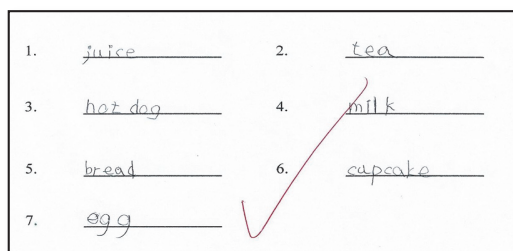 1. juice 2. tea
3. hot dog 4. milk
5. bread 6. cupcake
7. egg